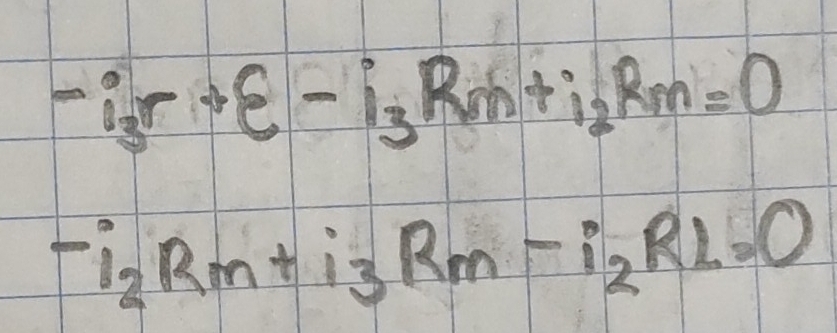 -i₃r+Ɛ-i₃Rm+i₂Rm=0
-i₂Rm+i₃Rm-i₂RL=0